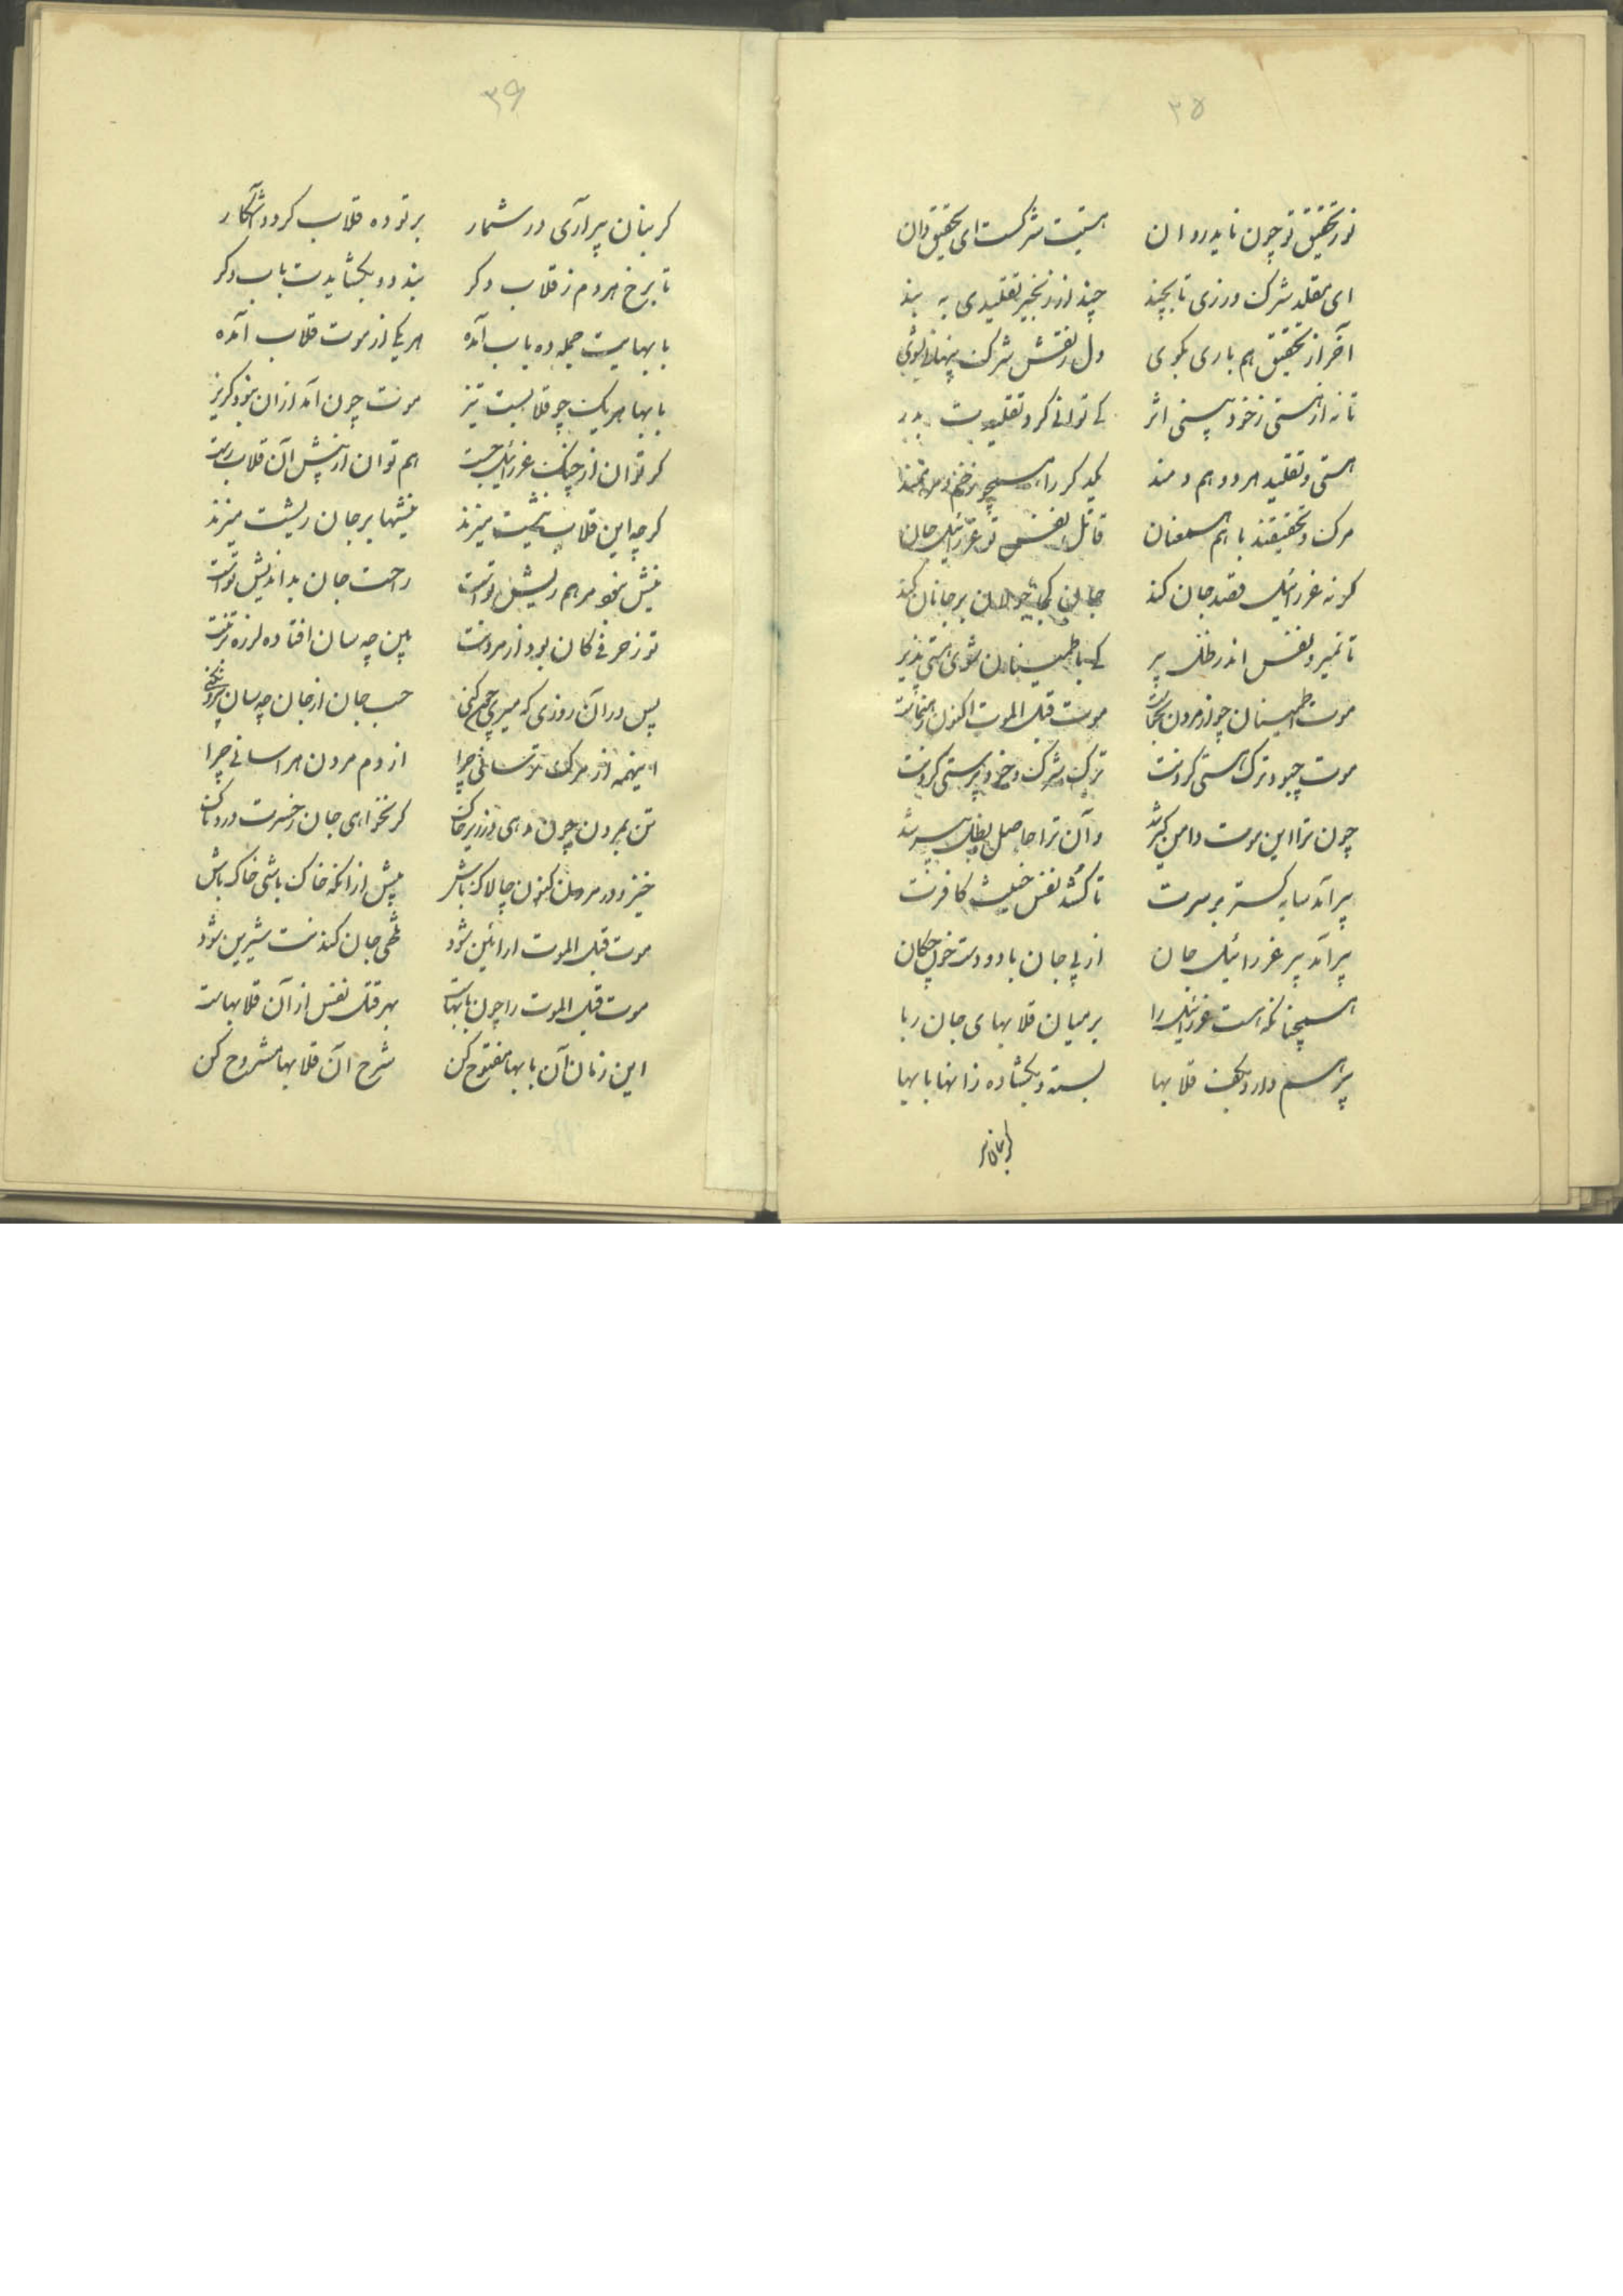 ۳۵
نور تحقیق تو چون ناید روان هستیت شرکست ای تحقیق دان
ای مقلد شرک ورزی تا بچند چند در زنجیر تقلیدی به بند
آخر از تحقیق هم باری بکوی دل ز نقش شرک پنهانی بشوی
تا نه از هستی ز خود بینی اثر کی توانی کرد تقلیدت بدر
هستی و تقلید هر دو همدمند یکدگر را همچو زخم و
مرک و تحقیقند با هم همعنان قاتل نفس تو عزرائیل جان
کر نه عزرائیل قصد جان کند جان کجا جولان بر جانان کند
تا نمیرد نفس اندر ظل پیر کی باطمینان شوی هستی پذیر
موت اطمینان چو از مردن موت قبل الموت اکنون
موت چبود ترک هستی کردنست ترک شرک و خود پرستی کردنست
چون ترا این موت دامن کیر شد وآن ترا حاصل بظل پیر شد
پیر آمد سایه کستر بر سرت تا کشد نفس خبیث کافرت
پیر آمد پیر عزرائیل جان از پی جان با دو دست خون چکان
همچنانکه هست عزرائیل را بر میان قلابهای جان ربا
پیر هم دارد بکف قلابها بسته و بکشاده زانها بابها
کر بنان پیر
۳۶
کر بنان پیر آری در شمار بر تو ده قلاب کردد آشکار
تا برخ هر دم ز قلاب دکر بندد و بکشایدت باب دکر
بابهایت جمله ده باب آمده هر یکی از موت قلاب آمده
بابها هر یک چو قلابیست تیز موتت چون آمد ازان نبود کریز
کر توان از چنک عزرائیل جست هم توان از نیش آن قلاب رست
کرچه این قلاب نیشت میزند نیشها بر جان ریشت میزند
نیش مرهم ریش تو است راحت جان بد اندیش تو است
تو ز حرفی کان بود از مردنت بین چه سان افتاده لرزه بر تنت
پس در آن روزی که میری چون کنی حب جان از جان چه سان بیرون کنی
اینهمه از مرک ترسانی چرا از دم مردن هراسانی چرا
تن بمردن چون دهی در زیر خاک کر نخواهی جان ز حسرت دردناک
خیز و در مردن کنون چالاک باش پیش از انکه خاک باشی خاک باش
موت قبل الموت ار آئین شود تلخی جان کندنت شیرین شود
موت قبل الموت را چون بابهاست بهر قتل نفس از آن قلابهاست
این زمان آن بابها مفتوح کن شرح آن قلابها مشروح کن